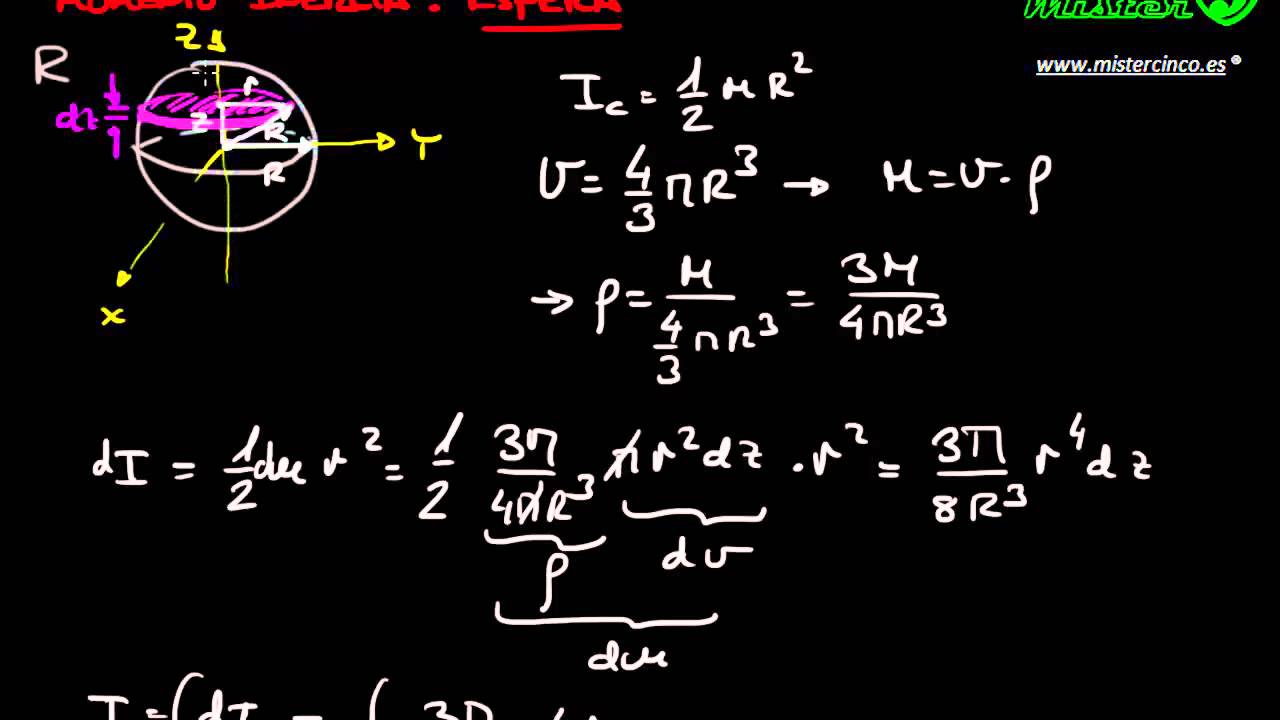 MOMENTO INERCIA: ESFERA
Mister
www.mistercinco.es®
R
Z
dz
r
Z
R
R
Y
X
I_c = 1/2 M R²
V = 4/3 π R³ → M = V · ρ
→ ρ = M / (4/3 π R³) = 3M / (4πR³)
dI = 1/2 dm r² = 1/2 3M/(4πR³) π r² dz · r² = 3M/(8R³) r⁴ dz
ρ
dv
dm
I = ∫ dI =